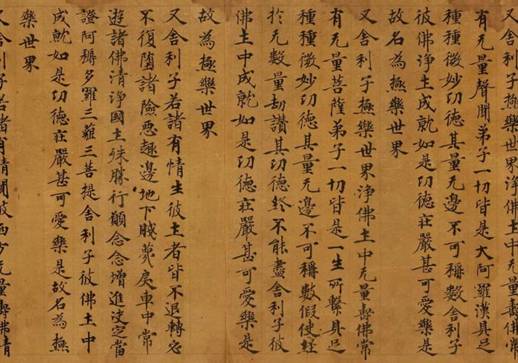 又舍利子極樂世界淨佛土中无量壽佛常
有无量聲聞弟子一切皆是大阿羅漢具足
種種微妙功德其量无邊不可稱數舍利子
彼佛淨土成就如是功德莊嚴甚可愛樂是
故名為極樂世界
又舍利子極樂世界淨佛土中无量壽佛常
有无量菩薩弟子一切皆是一生所繫具足
種種微妙功德其量无邊不可稱數假使經
於无數量劫讚其功德終不能盡舍利子彼
佛土中成就如是功德莊嚴甚可愛樂是
故為極樂世界
又舍利子若諸有情生彼土者皆不退轉必
不復墮諸險惡趣邊地下賤蔑戾車中常
遊諸佛清淨國土殊勝行願念念增進決定當
證阿耨多羅三藐三菩提舍利子彼佛土中
成就如是功德莊嚴甚可愛樂是故名為極
樂世界